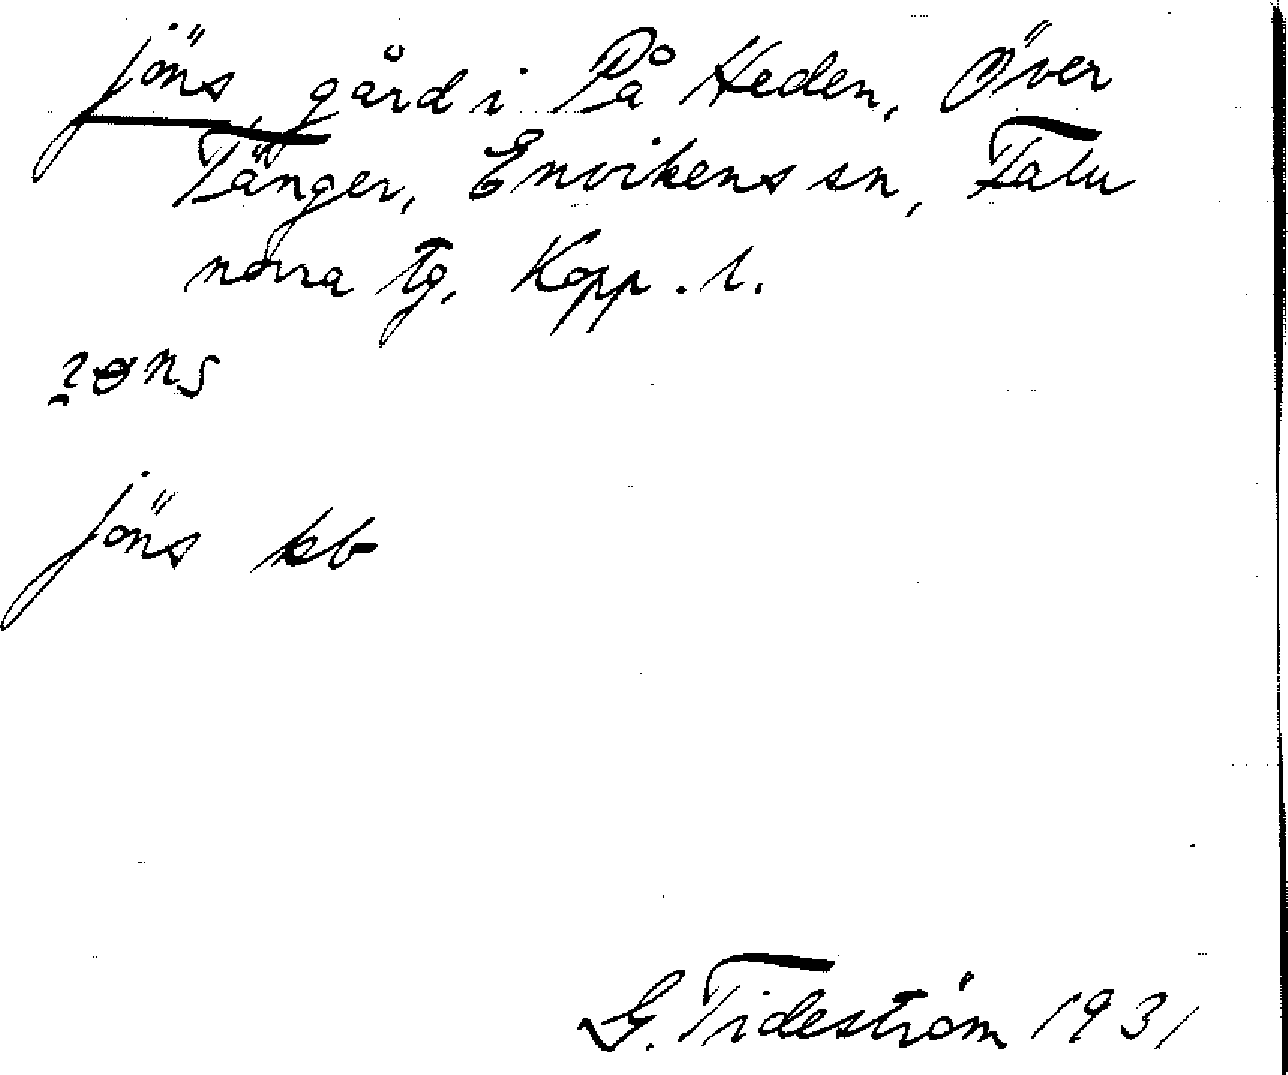 Jöns, gård i På Heden, Över
Tänger, Envikens sn, Falu
norra tg, Kopp. l.
Jöns kb
G. Tideström 1931